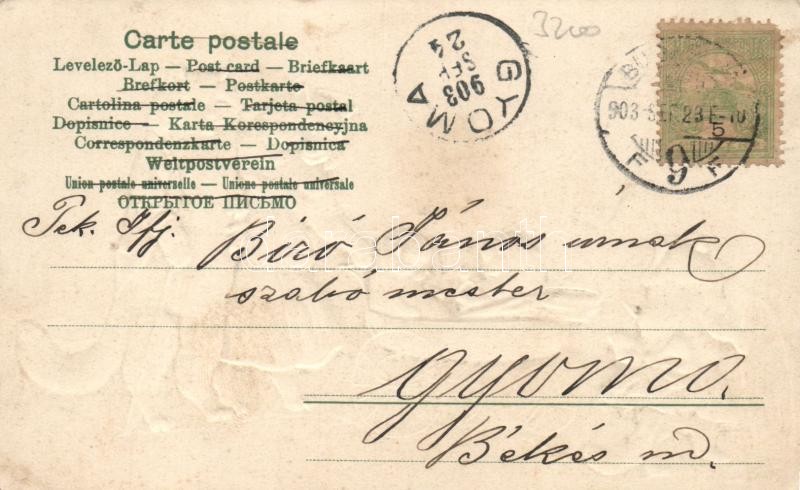 3200
Carte postale
Levelező-Lap — Post card — Briefkaart
Brefkort — Postkarte
Cartolina postale — Tarjeta postal
Dopisnice — Karta Korespondencyjna
Correspondenzkarte — Dopisnica
Weltpostverein
Union postale universelle — Unione postale universale
ОТКРЫТОЕ ПИСЬМО
GYOMA
903
SEP
24
BU
903 SEP 23 E-10
5
9
Tek. Ifj. Biró János urnak
szabó mester
Gyoma.
Békés m.
darabanth